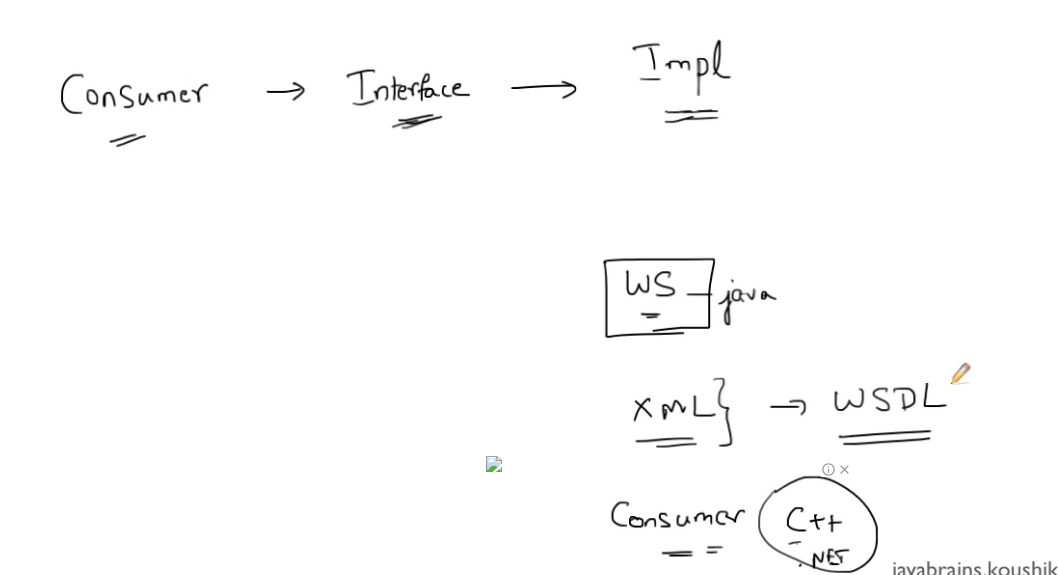 Consumer → Interface → Impl
WS - java
XML} → WSDL
Consumer C++
.NET
javabrains.koushik